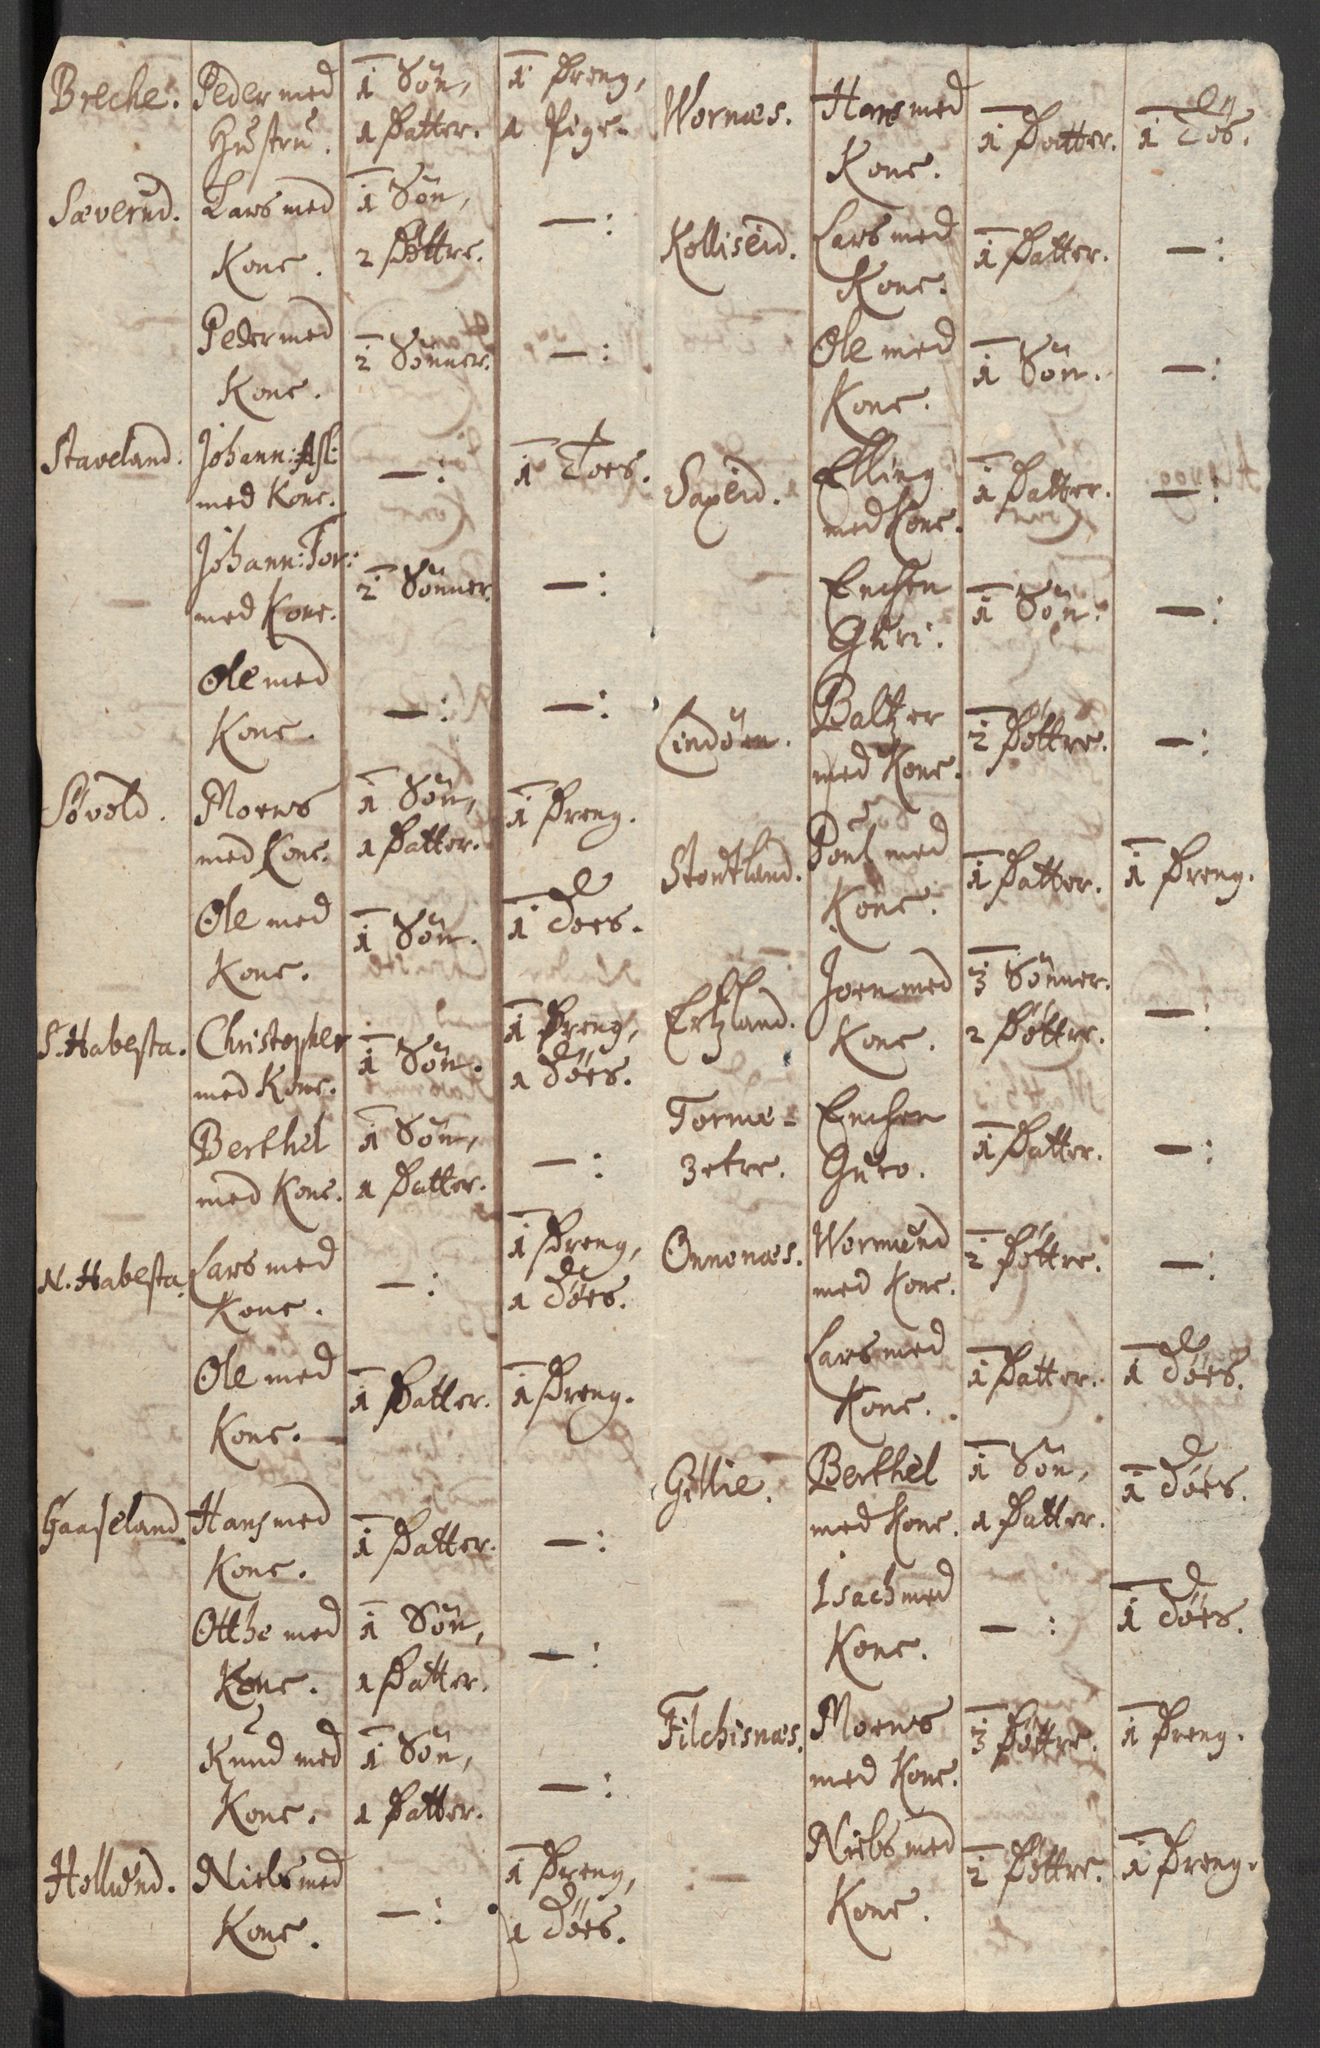 Breche. Peder med 1 Søn, 1 Dreng,
Hustru. 1 Datter. 1 Pige.
Sæverud. Lars med 1 Søn, —:
Kone. 2 Døttre.
Peder med 2 Sønner. —:
Kone.
Staveland. Johann: Asl: —: 1 Toes.
med Kone.
Johann: Tor: 2 Sønner. —:
med Kone.
Ole med —: —:
Kone.
Søvold. Moens 1 Søn, 1 Dreng.
med Kone. 1 Datter.
Ole med 1 Søn. 1 Does.
Kone.
S. Habesta. Christopher 1 Søn. 1 Dreng,
med Kone. 1 Døes.
Berthel 1 Søn, —:
med Kone. 1 Datter.
N. Habesta. Lars med —: 1 Dreng,
Kone. 1 Døes.
Ole med 1 Datter. 1 Dreng.
Kone.
Gaaseland Hans med 1 Datter. —:
Kone.
Otthe med 1 Søn, —:
Kone. 1 Datter.
Knud med 1 Søn, —:
Kone. 1 Datter.
Hollund. Niels med —: 1 Dreng,
Kone. 1 Døes.
Wornæs. Hans med 1 Datter. 1 Tøs.
Kone.
Kolliseid. Lars med 1 Datter. —:
Kone.
Ole med 1 Søn. —:
Kone.
Saxeid. Elling 1 Datter. —:
med Kone.
Enchen 1 Søn. —:
Guri.
Lindøen. Baltzer 2 Døttre. —:
med Kone.
Stontland. Poul med 1 Datter. 1 Dreng.
Kone.
Ertzland. Joen med 3 Sønner. —:
Kone. 2 Døttre.
Tormæ- Enchen 1 Datter. —:
zetre. Guro.
Onnenæs. Wermund 2 Døttre. —:
med Kone.
Lars med 1 Datter. 1 Døes.
Kone.
Gillie. Berthel 1 Søn, 1 Døes.
med Kone. 1 Datter.
Isach med —: 1 Døes.
Kone.
Filchisnæs. Moens 3 Døttre. 1 Dreng.
med Kone.
Niels med 2 Døttre. 1 Dreng.
Kone.